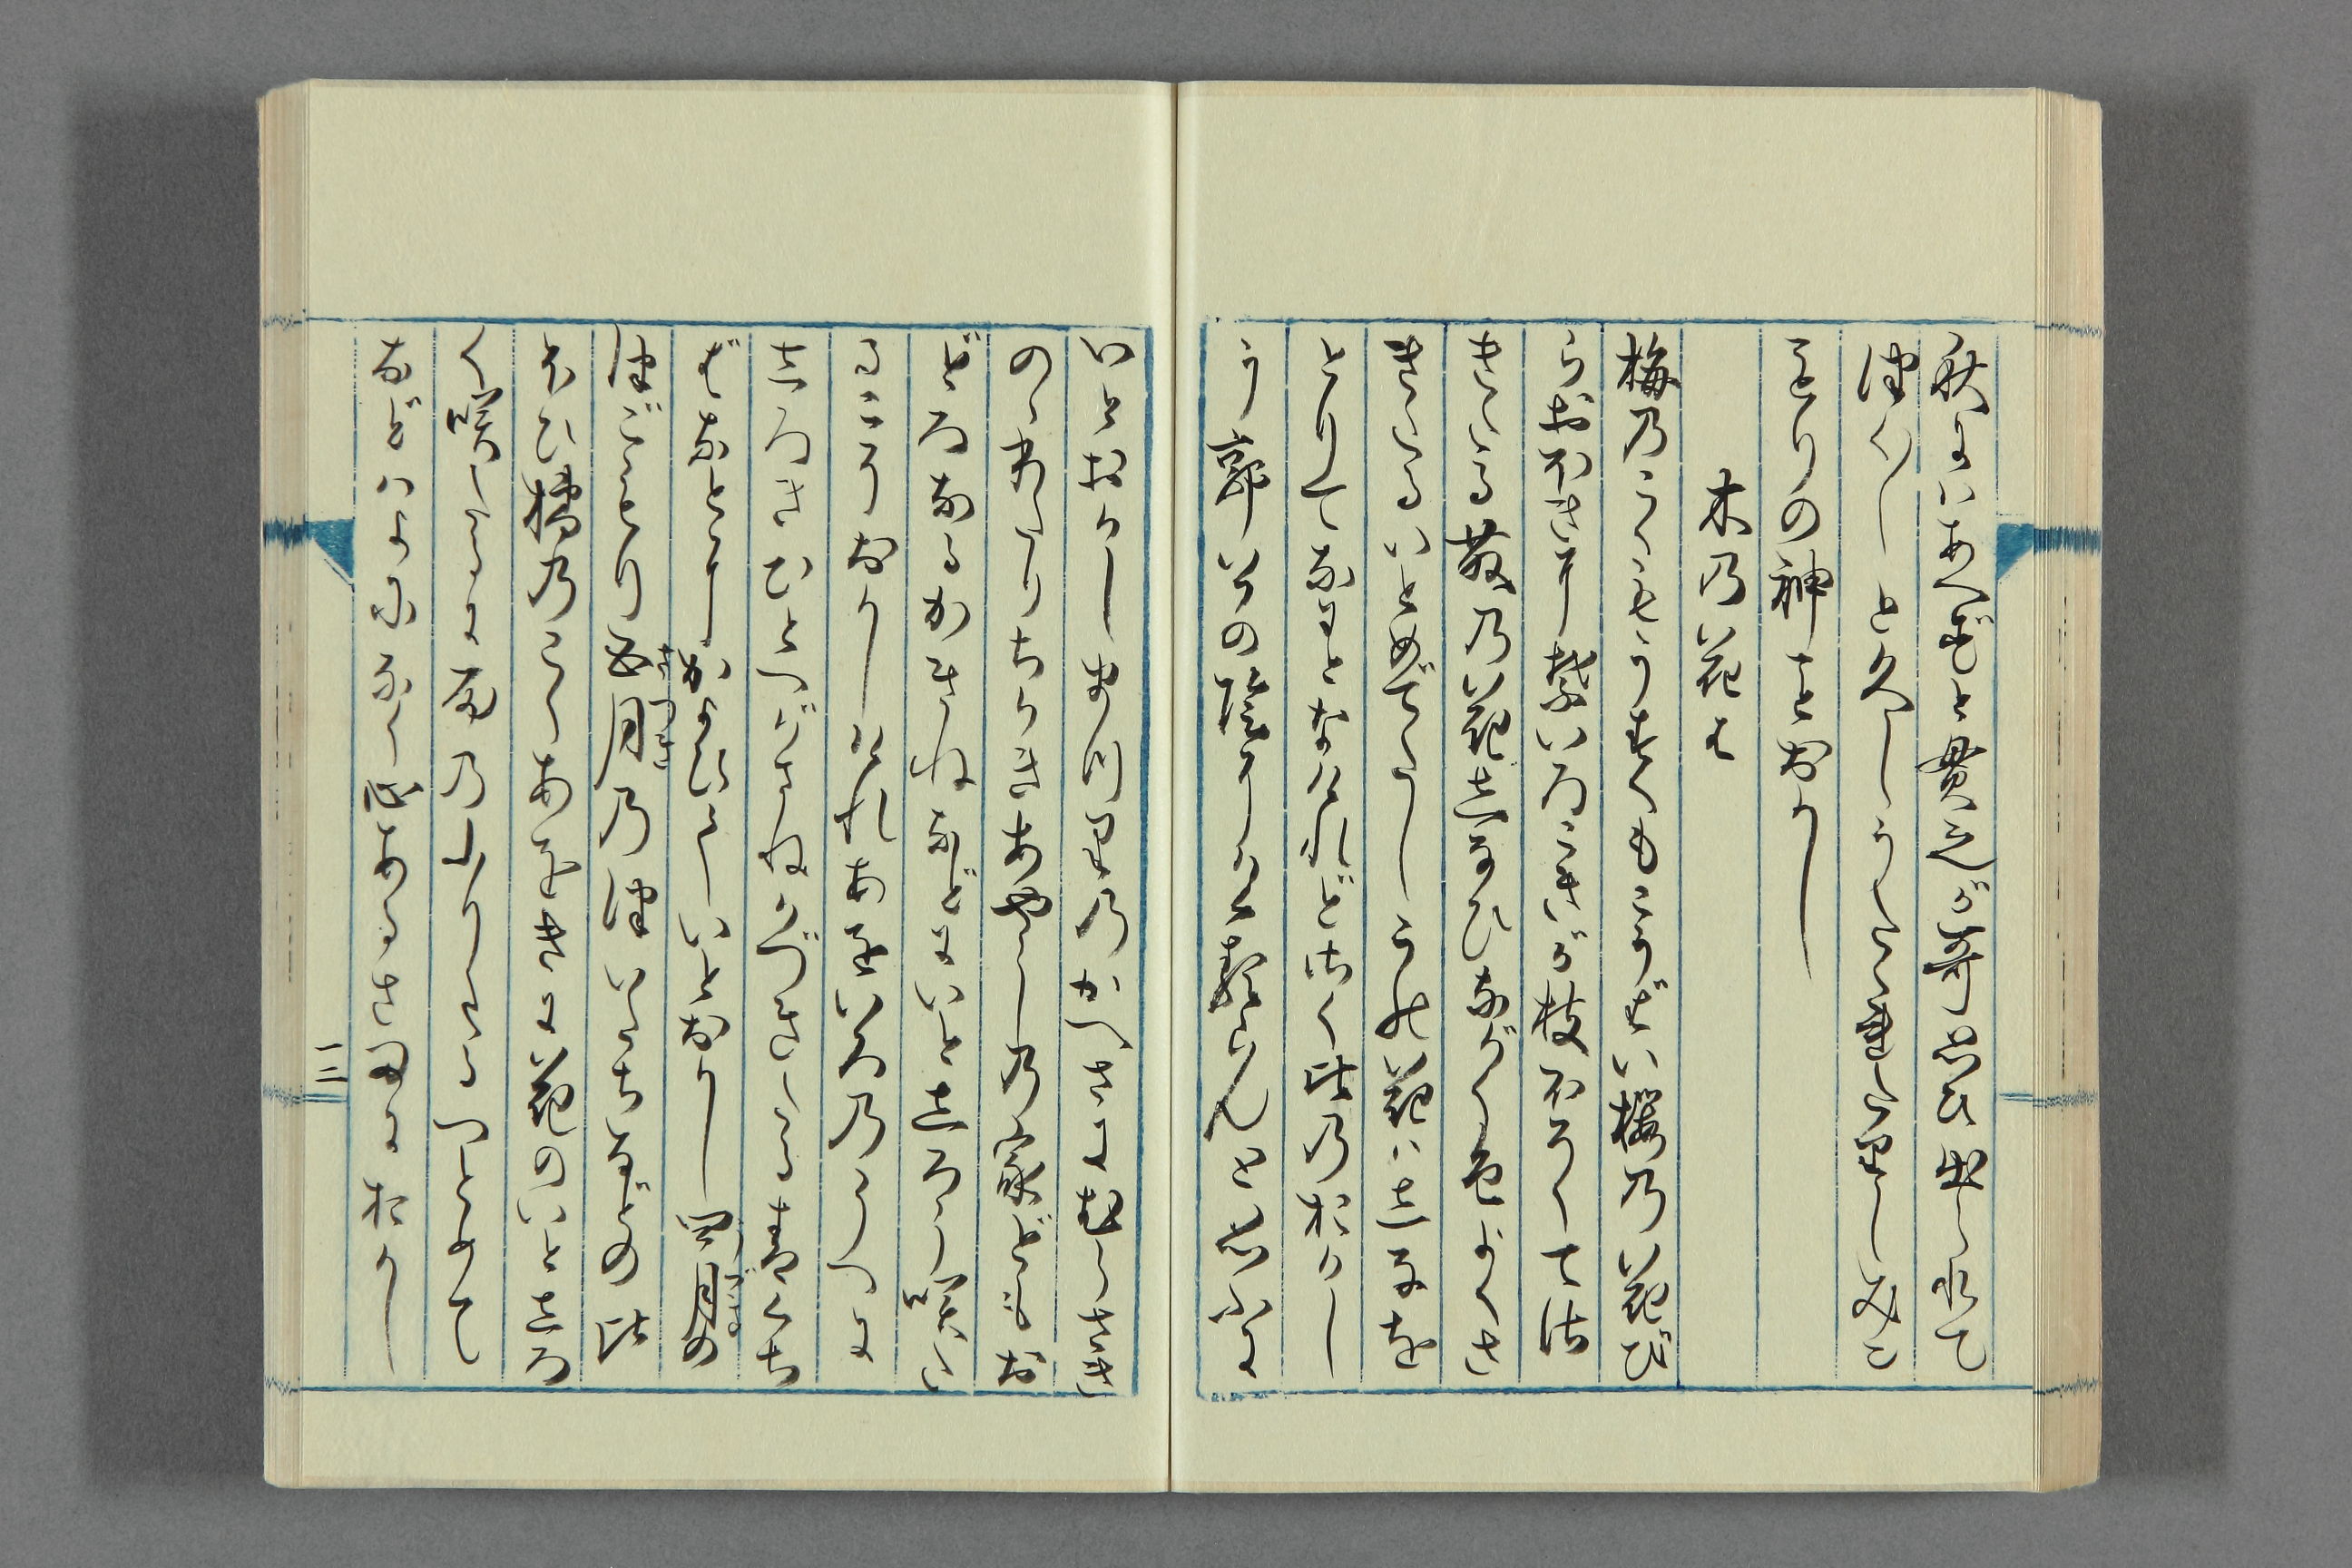 秋にはあへずと貫之が歌思ひ出られて
つく〱と久しうこそたてられしみこ
もりの神またおかし
木乃花は
梅乃こくもうすくもこうばい桜乃花び
らおほきに葉いろこきが枝ほそくてさ
きたる藤乃花しなひながく色よくさ
きたるいとめでたしうの花はしなを
とりてなにとなけれどさく比乃おかし
う郭公の陰にかくるらんと思ふに
いとおかしまつり乃かへさにむらさき
のゝわたりちかきあやし乃家どもお
どろなるかきねなどにいとしろう咲
たるこそおかしけれあをいろ乃うへに
しろきひとへがさねかづきたるあをくち
ばなどにかよひていとおかし四月の
つごもり五月乃つゐたちなどの比
ほひ橘乃こくあをきに花のいとしろ
く咲たるに雨乃ふりたるつとめて
などはよになく心あるさまにおかし
三